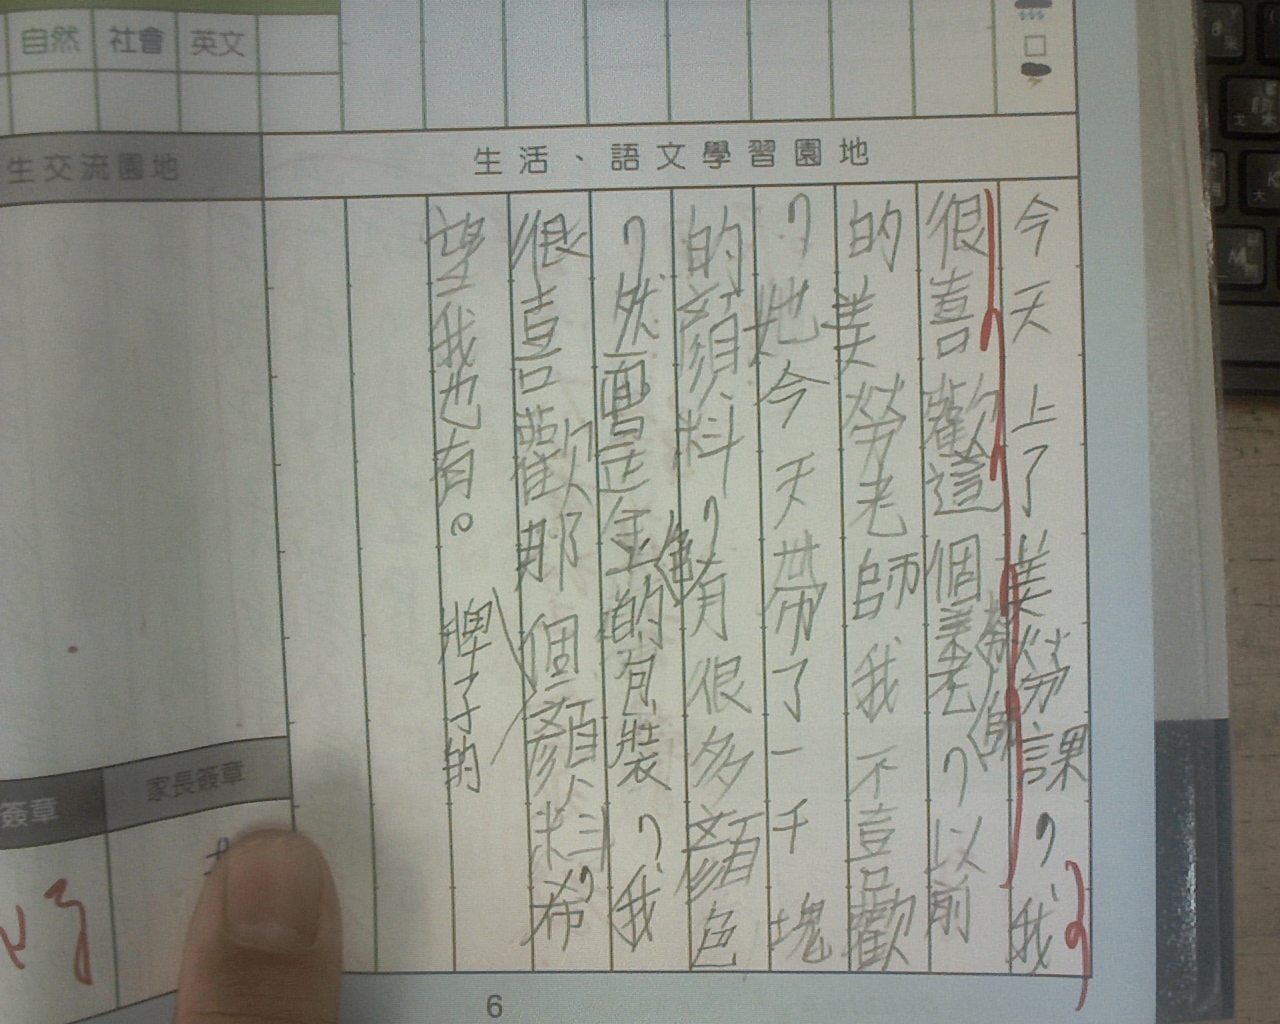 自然 社會 英文
生交流園地
生活、語文學習園地
今天上了美勞課，我
很喜歡這個美勞老師，以前
的美勞老師我不喜歡
，她今天帶了一千塊
的顏料，有很多顏色
，然是金的包裝，我
很喜歡那個顏料，希
望我也有。 牌子的
簽章
家長簽章
6